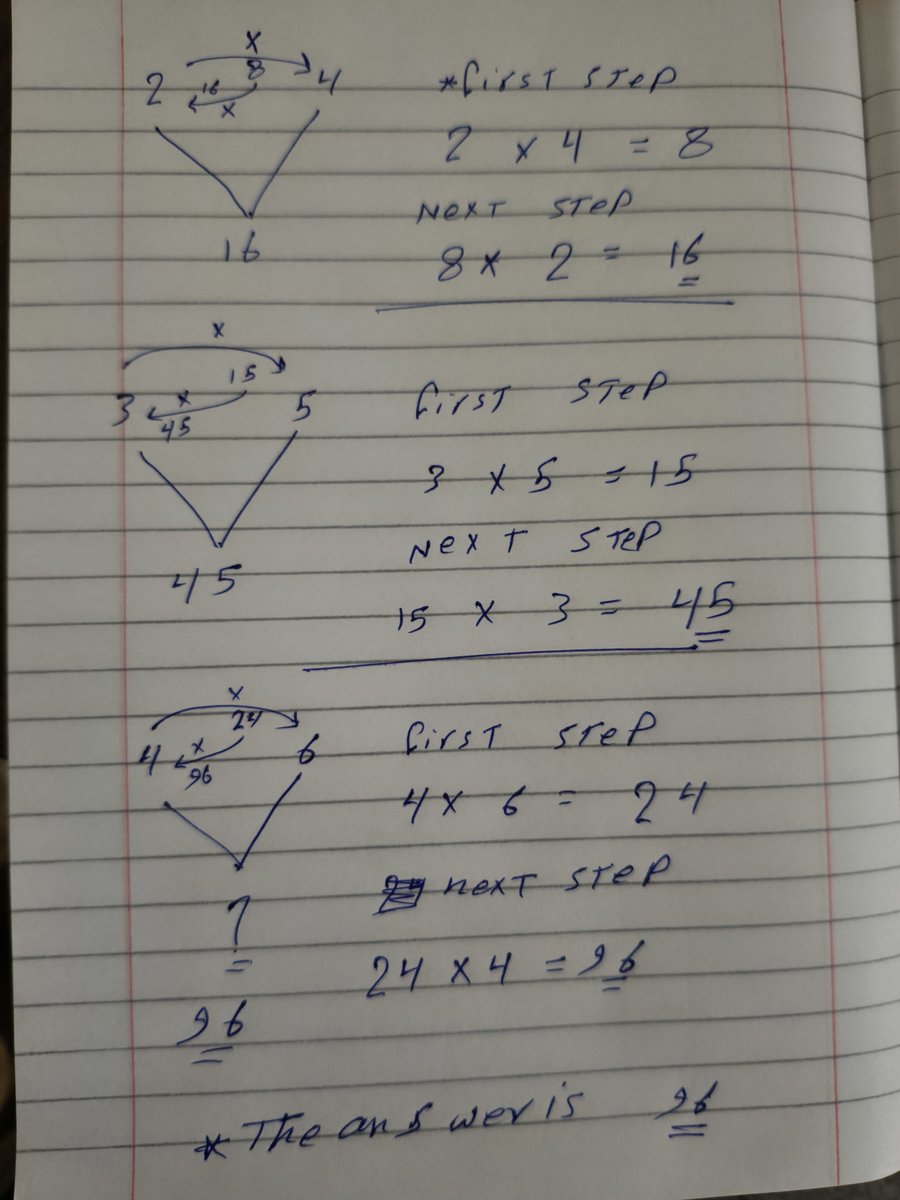 x
2 8 4
16
x
16
*first step
2 x 4 = 8
Next step
8 x 2 = 16
x
15
3 x 5
45
45
first step
3 x 5 = 15
Next step
15 x 3 = 45
x
24
4 x 6
96
?
96
first step
4 x 6 = 24
next step
24 x 4 = 96
* The answer is 96